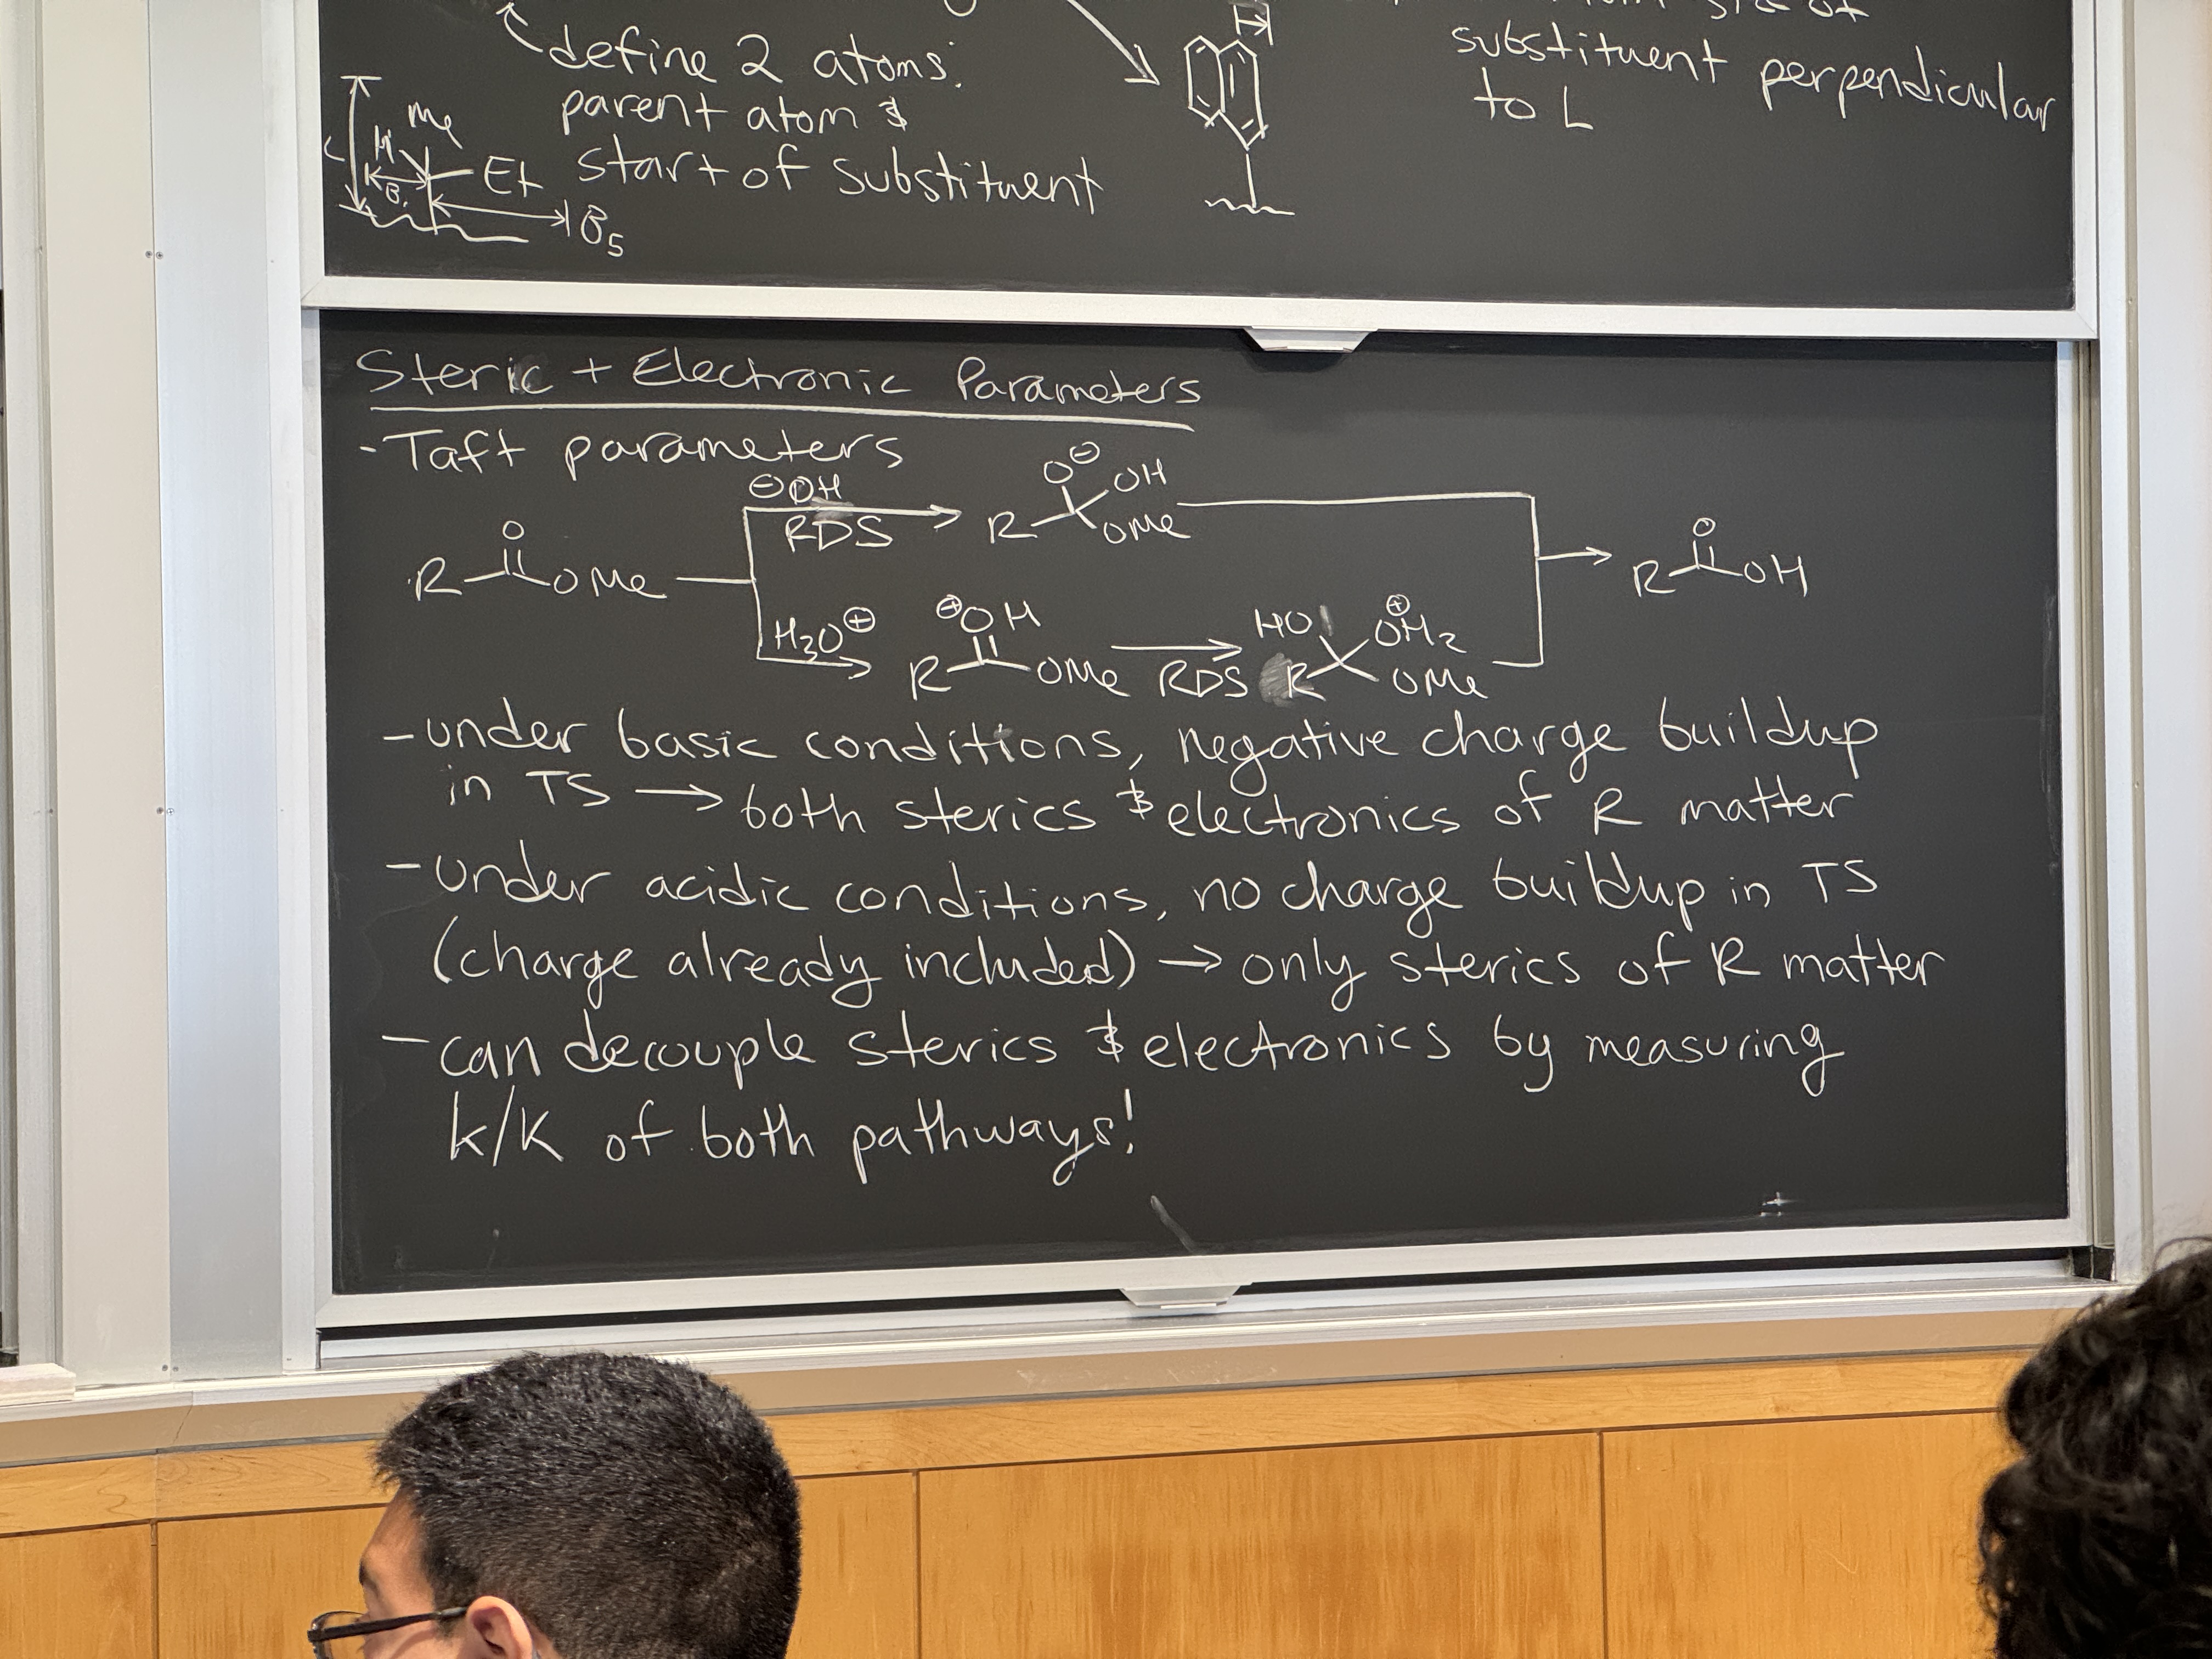 define 2 atoms:
parent atom &
start of substituent
Me
H
Et
L
B₁
B₅
H
substituent perpendicular
to L
Steric + Electronic Parameters
- Taft parameters
O
R OMe
⊖OH
RDS
O⊖
OH
R OMe
H₃O⊕
⊕OH
R OMe
RDS
HO ⊕OH₂
R OMe
O
R OH
- under basic conditions, negative charge buildup
in TS → both sterics & electronics of R matter
- under acidic conditions, no charge buildup in TS
(charge already included) → only sterics of R matter
- can decouple sterics & electronics by measuring
k/K of both pathways!